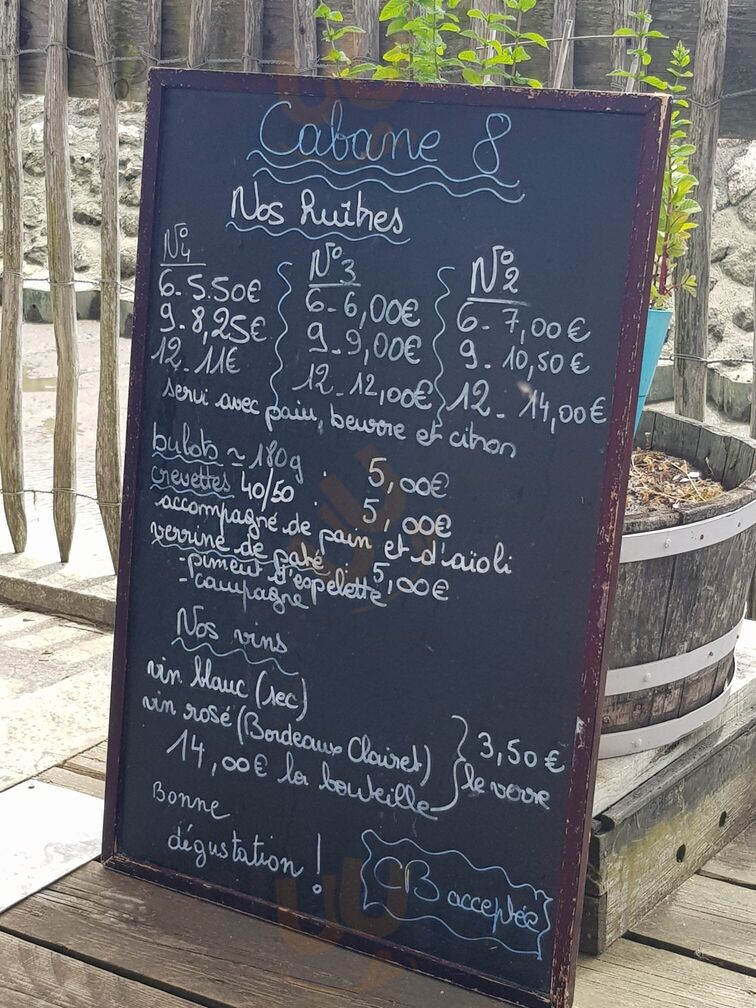 Cabane 8
Nos Huîtres
N°4
6_5.50€
9_8,25€
12_11€
N°3
6_6,00€
9_9,00€
12_12,00€
N°2
6_7,00€
9_10,50€
12_14,00€
servi avec pain, beurre et citron
bulots ≃ 180g : 5,00€
crevettes 40/50 : 5,00€
accompagné de pain et d'aïoli
verrine de paté : 5,00€
-piment d'espelette
-campagne
Nos vins
vin blanc (sec)
vin rosé (Bordeaux Clairet)
3,50€
le verre
14,00€ la bouteille
Bonne
dégustation !
CB acceptée